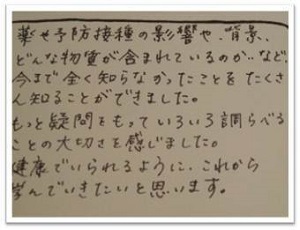 薬や予防接種の影響や、背景、
どんな物質が含まれているのか‥など、
今まで全く知らなかったことをたくさ
ん知ることができました。
もっと疑問をもっていろいろ調らべる
ことの大切さを感じました。
健康でいられるように、これから
学んでいきたいと思います。